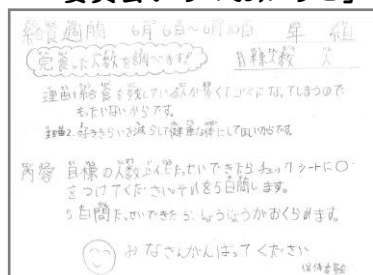 給食週間 6月6日～6月10日 年 組
完食した人数を調べます! 目標人数 人
理由1 給食を残している人が多くてゴミになってしまうので
もったいないからです。
理由2. 好ききらいを減らして健康な体にしてほしいからです。
内容 目標の人数ぶんたっせいできたらチェックシートに○
をつけてください。それを5日間します。
5日間たっせいできたら、しょうじょうがおくられます。
みなさんがんばってください